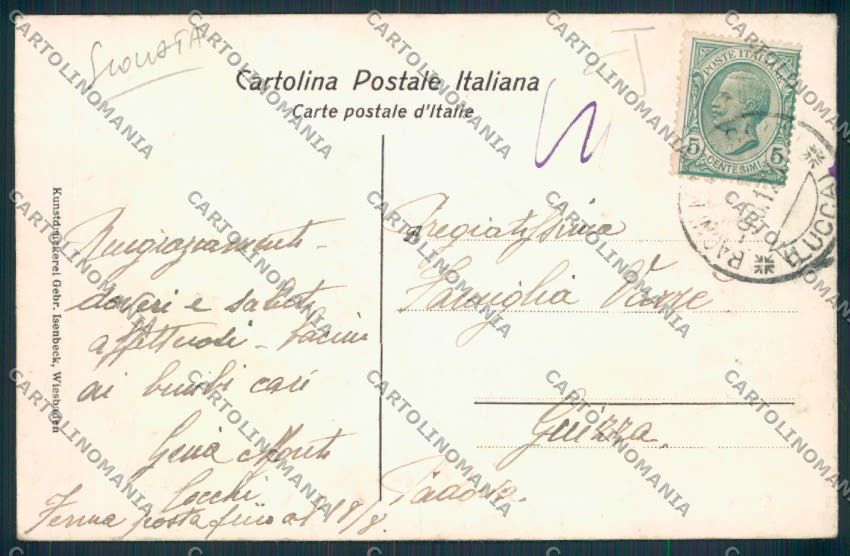 GIONATA
Cartolina Postale Italiana
Carte postale d'Italie
POSTE ITALIANE
5 CENTESIMI 5
(LUCCA)
Kunstdruckerei Gebr. Isenbeck, Wiesbaden
Ringraziamenti -
doveri e saluti
affettuosi - bacini
ai bimbi cari
Genia Monti
Cocchi
Ferma posta fino al 18/8.
Pregiatissima
Famiglia
Guizza.
Padova.
CARTOLINOMANIA